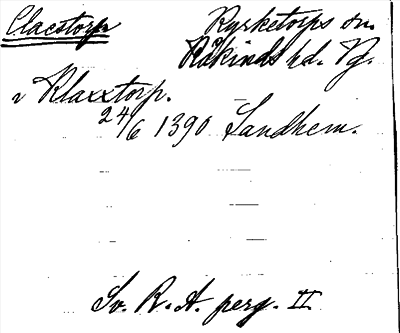 Claestorp Kyrketorps sn.
Råkinds hd. Vg.
i Klaxxtorp.
24/6 1390 Sandhem.
Sv. R. A. perg. II